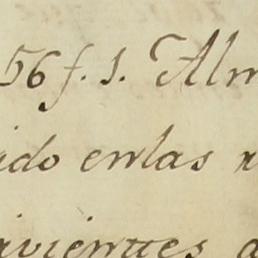 56 f. 1. Alm
ido enlas
vientes a